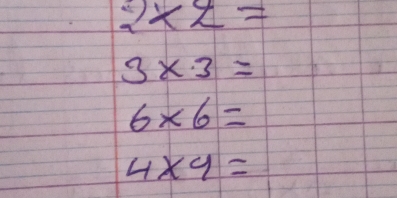 2×2=
3×3=
6×6=
4×9=